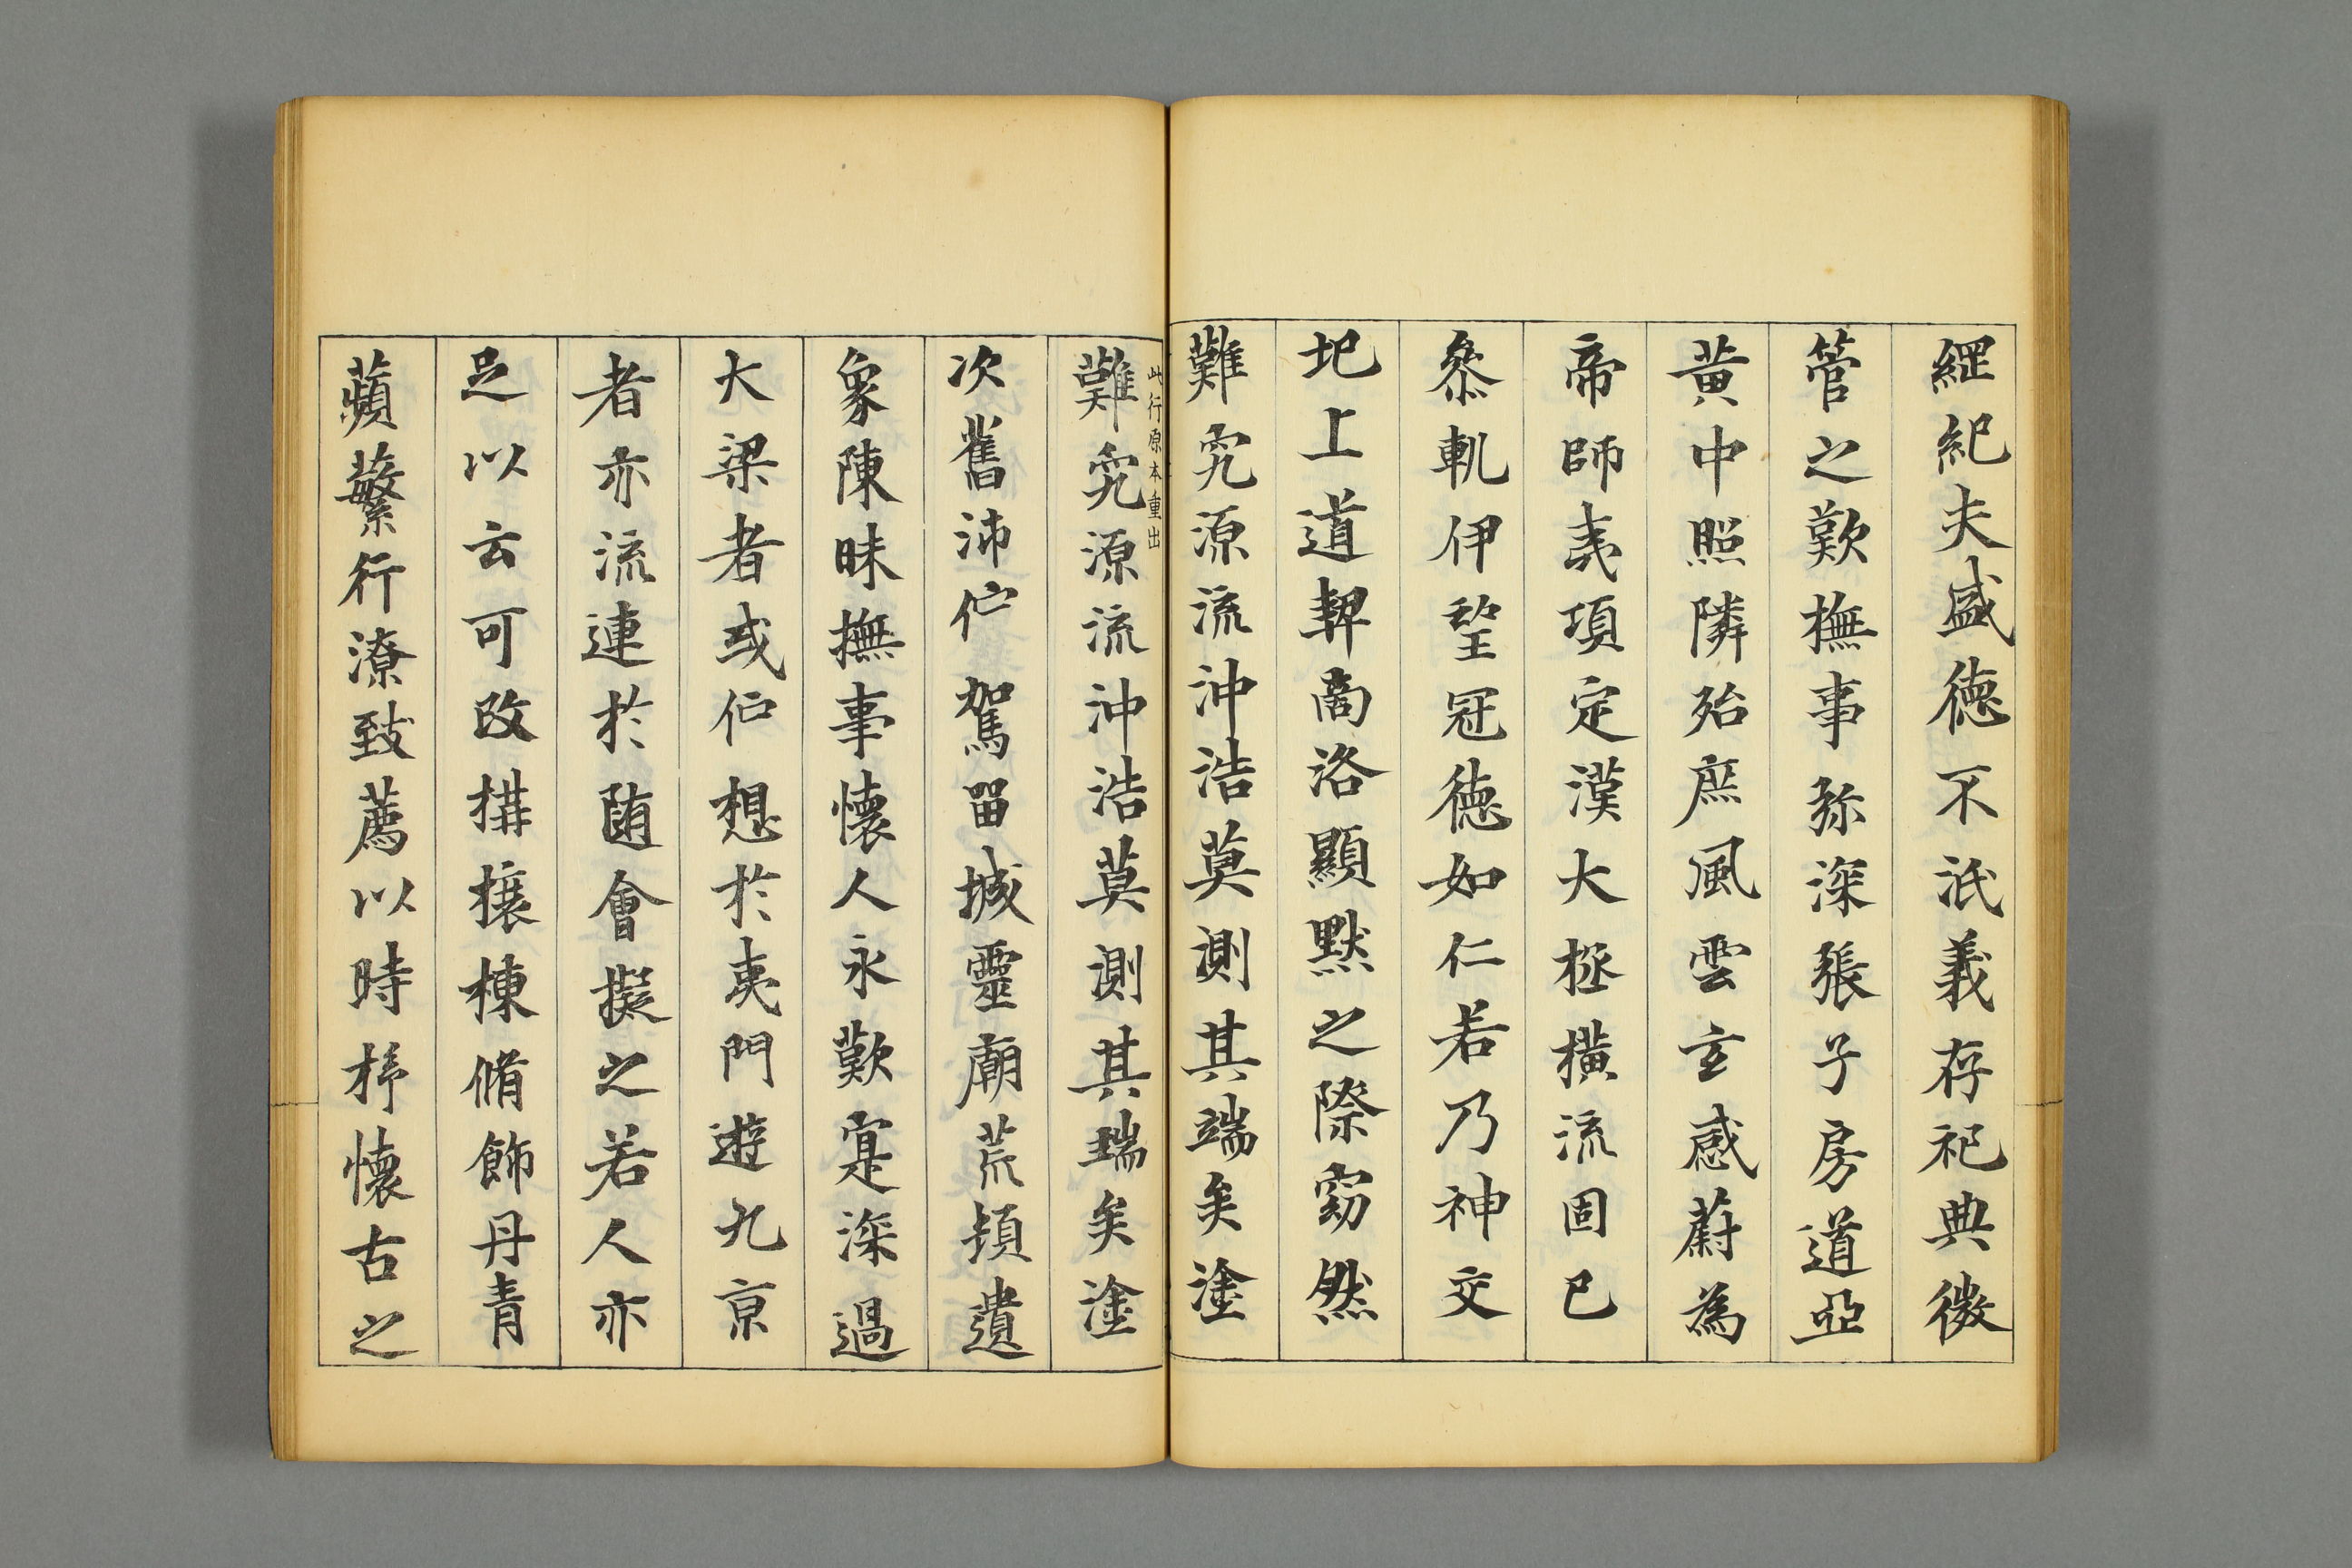 綱紀夫盛德不泯義存祀典微
管之歎撫事弥深張子房道亞
黃中照隣殆庶風雲玄感蔚為
帝師夷項定漢大拯橫流固已
叅軌伊望冠德如仁若乃神交
圯上道契商洛顯默之際窈然
難究源流沖浩莫測其端矣塗
此行原本重出
難究源流沖浩莫測其端矣塗
次舊沛佇駕留城靈廟荒頓遺
象陳昧撫事懷人永歎寔深過
大梁者或佇想於夷門遊九京
者亦流連於随會擬之若人亦
足以云可改構攘棟脩飾丹青
蘋蘩行潦致薦以時抒懷古之